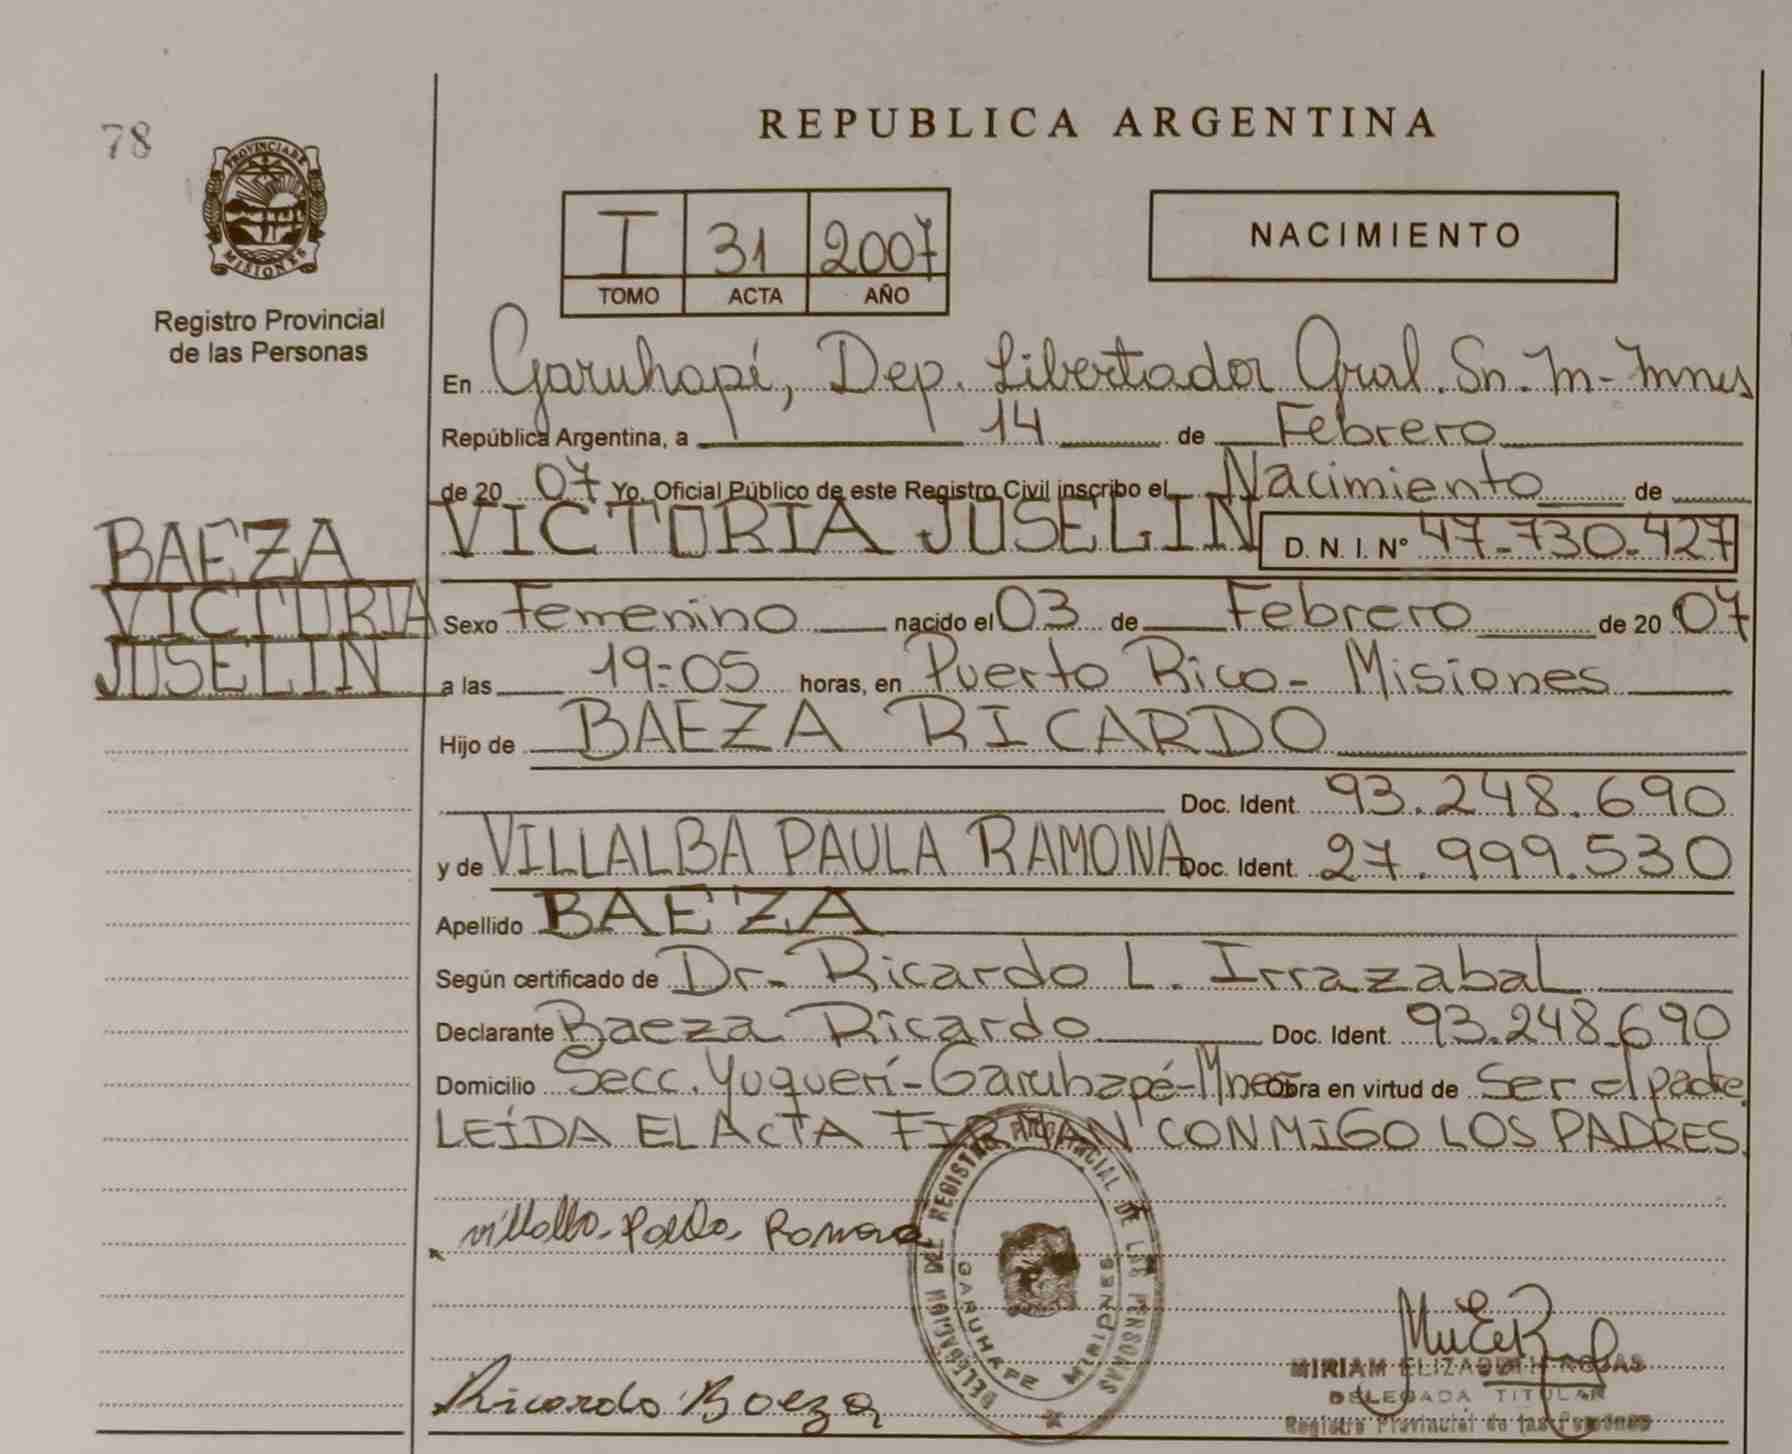 78
REPUBLICA ARGENTINA
PROVINCIA DE
MISIONES
Registro Provincial
de las Personas
I 31 2007
TOMO ACTA AÑO
NACIMIENTO
En Garuhapé, Dep. Libertador Gral. Sn. M- Mnes
República Argentina, a 14 de Febrero
de 20 07 Yo, Oficial Público de este Registro Civil inscribo el Nacimiento de
VICTORIA JOSELIN D. N. I. Nº 47-730-427
BAEZA
VICTORIA
JOSELIN
Sexo Femenino nacido el 03 de Febrero de 20 07
a las 19:05 horas, en Puerto Rico - Misiones
Hijo de BAEZA RICARDO
Doc. Ident. 93.248.690
y de VILLALBA PAULA RAMONA Doc. Ident. 27.999.530
Apellido BAEZA
Según certificado de Dr. Ricardo L. Irrazabal
Declarante Baeza Ricardo Doc. Ident. 93.248.690
Domicilio Secc. Yuquerí - Garuhapé - Mnes Obra en virtud de Ser el padre.
LEÍDA EL ACTA FIRMAN CONMIGO LOS PADRES.
Villalba Paula Ramona
DELEGACION DEL REGISTRO PROVINCIAL DE LAS PERSONAS
GARUHAPE MISIONES
Ricardo Baeza
MIRIAM ELIZABETH ROJAS
DELEGADA TITULAR
Registro Provincial de las Personas